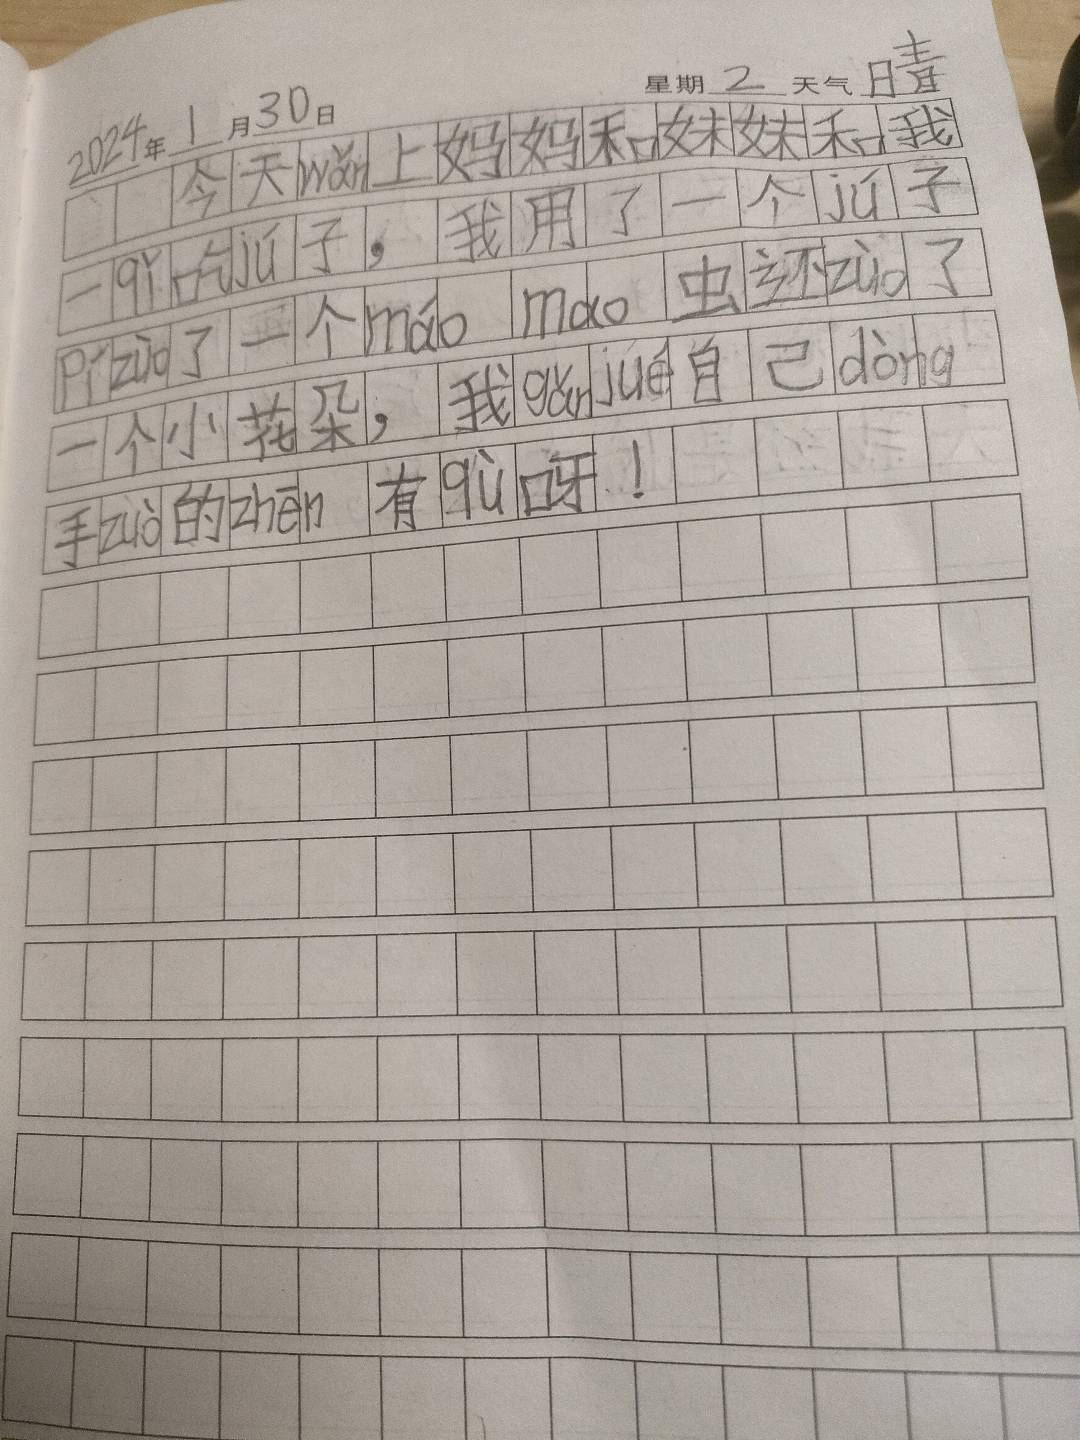 2024年1月30日 星期2 天气晴
今天wǎn上妈妈和妹妹和我
一qǐ吃jú子，我用了一个jú子
pízùo了一个máo mao虫还zùo了
一个小花朵，我gǎnjué自己dòng
手zuò的zhēn有qù呀！